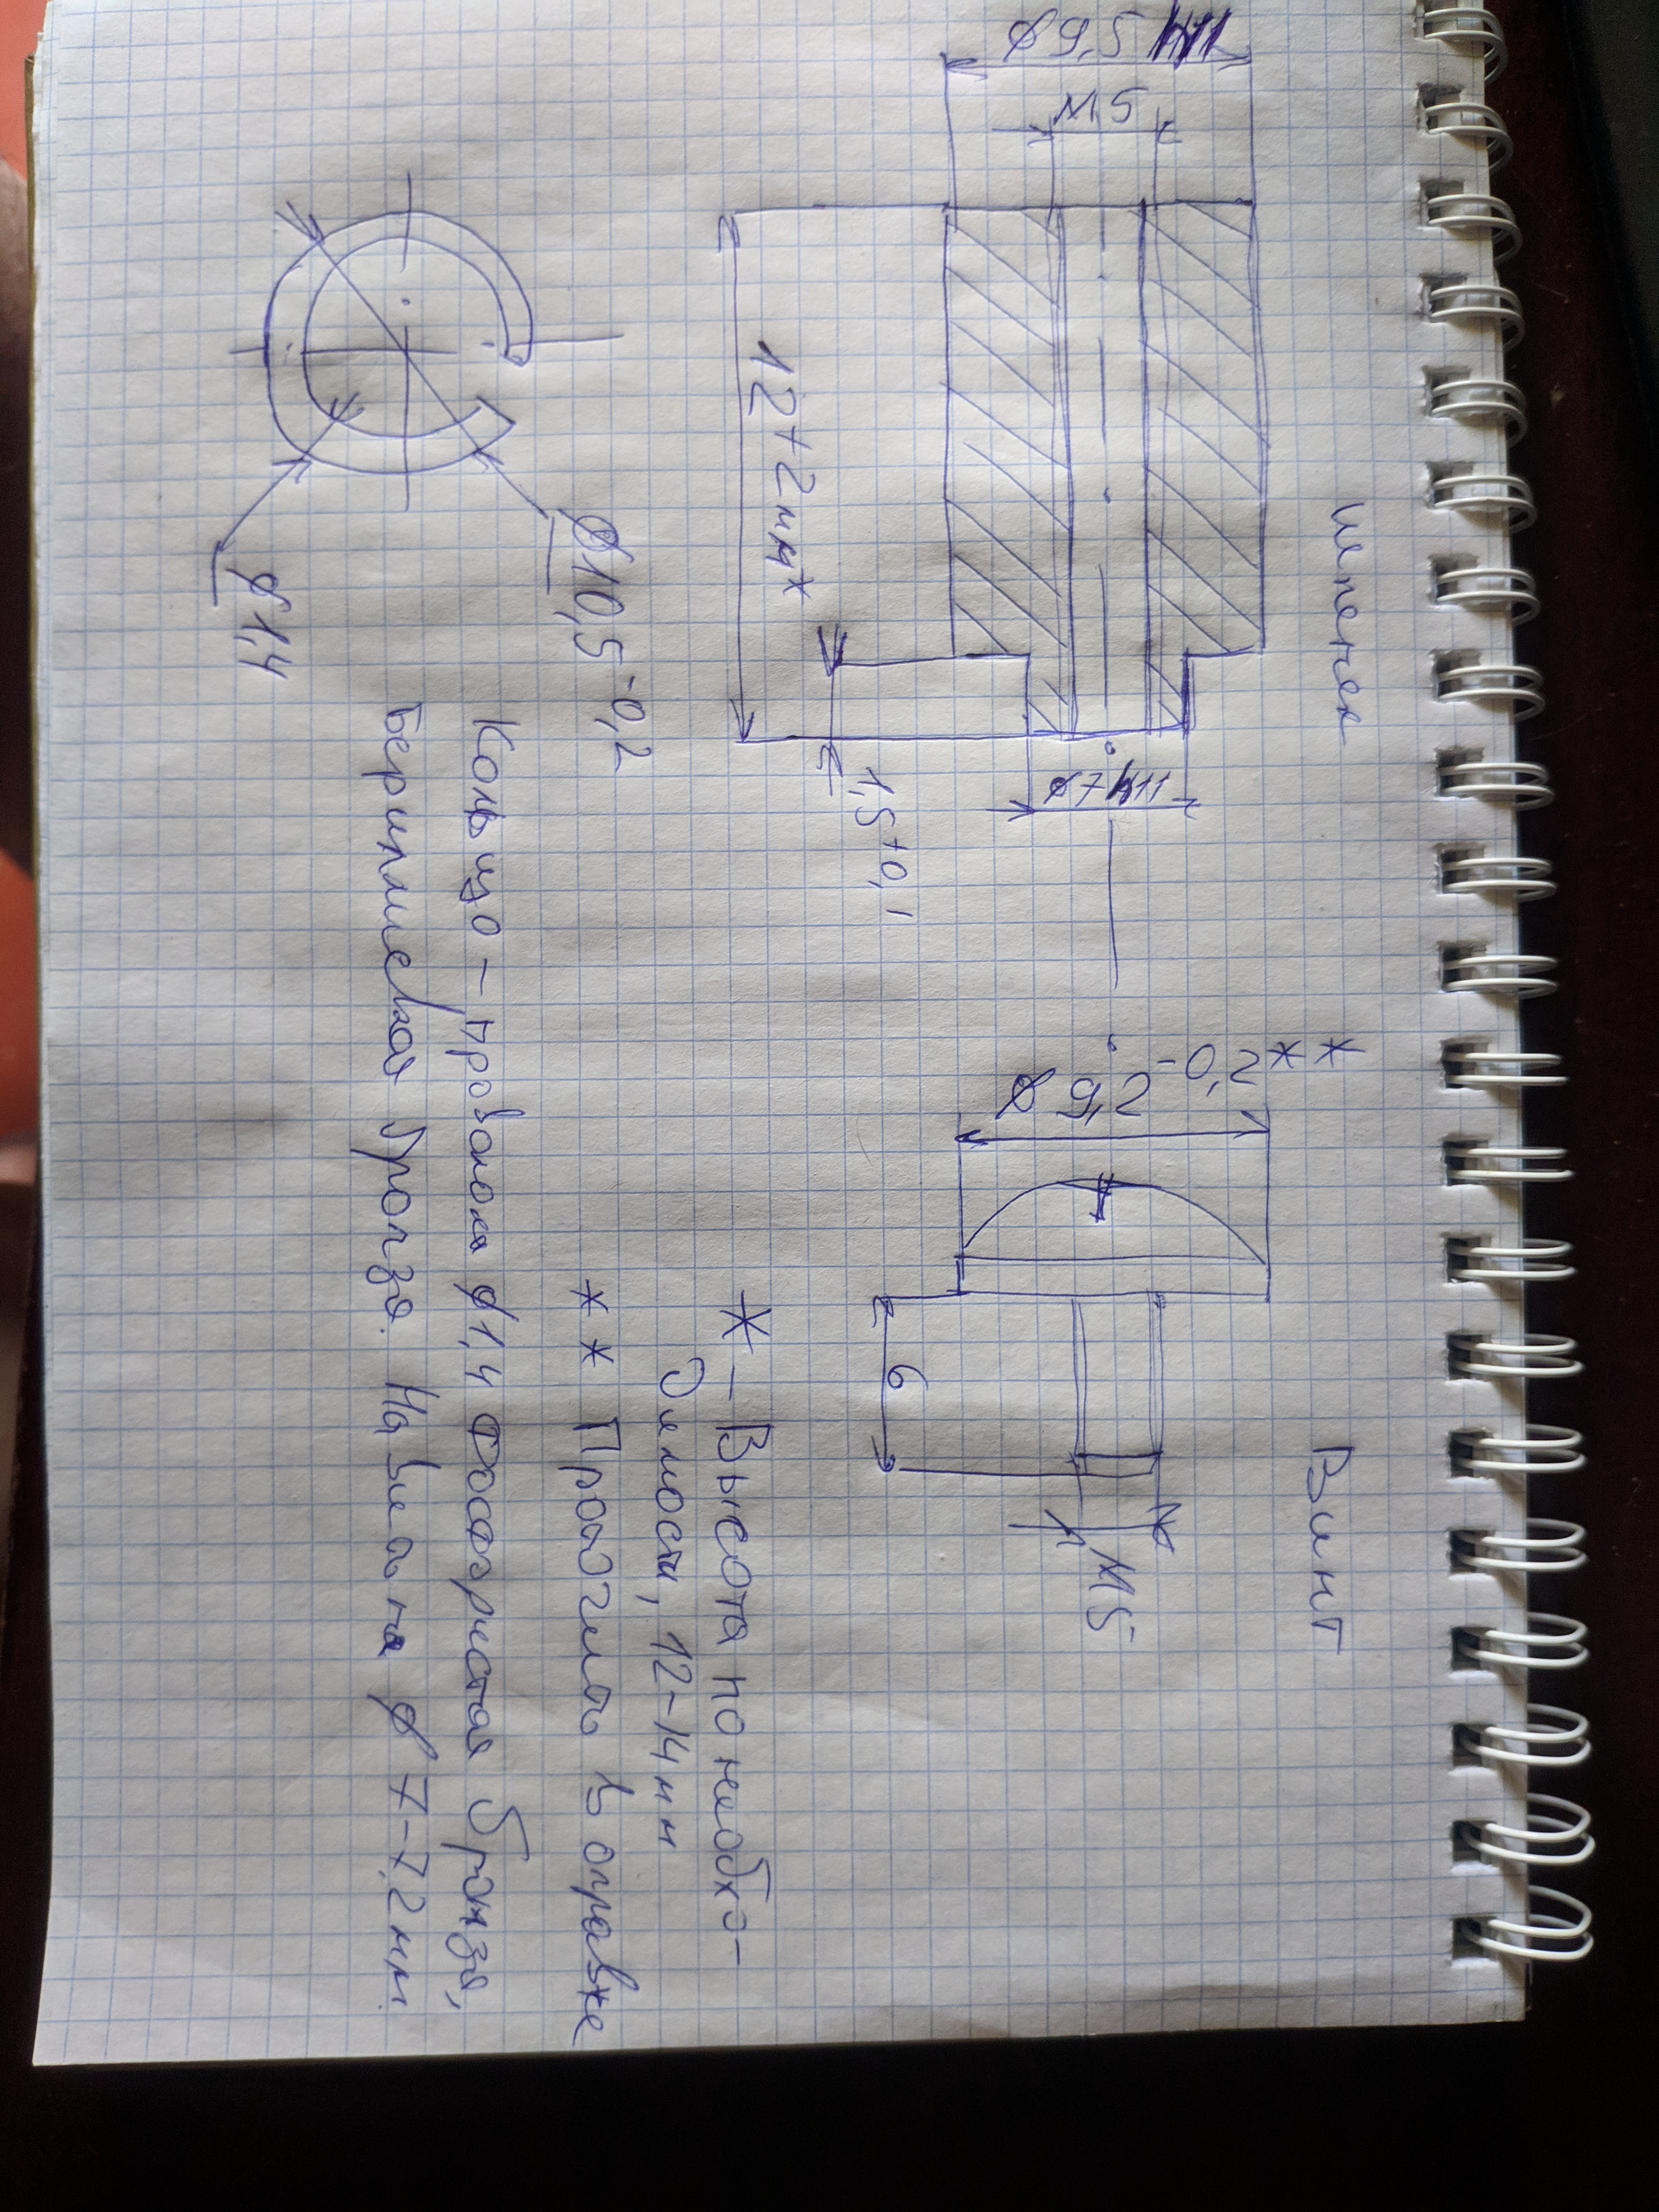 Штекер
Винт
⌀9,5 h11
М5
12+2мм*
1,5+0,1
⌀7 h11
⌀9,2-0,2**
6
М5
* – Высота по необхо-
димости, 12-14мм
** Проточить в оправке
⌀10,5-0,2
⌀1,4
Кольцо – проволока ⌀1,4 Фосфористая бронза,
Бериллиевая бронза. Навивать на ⌀ 7-7,2мм.